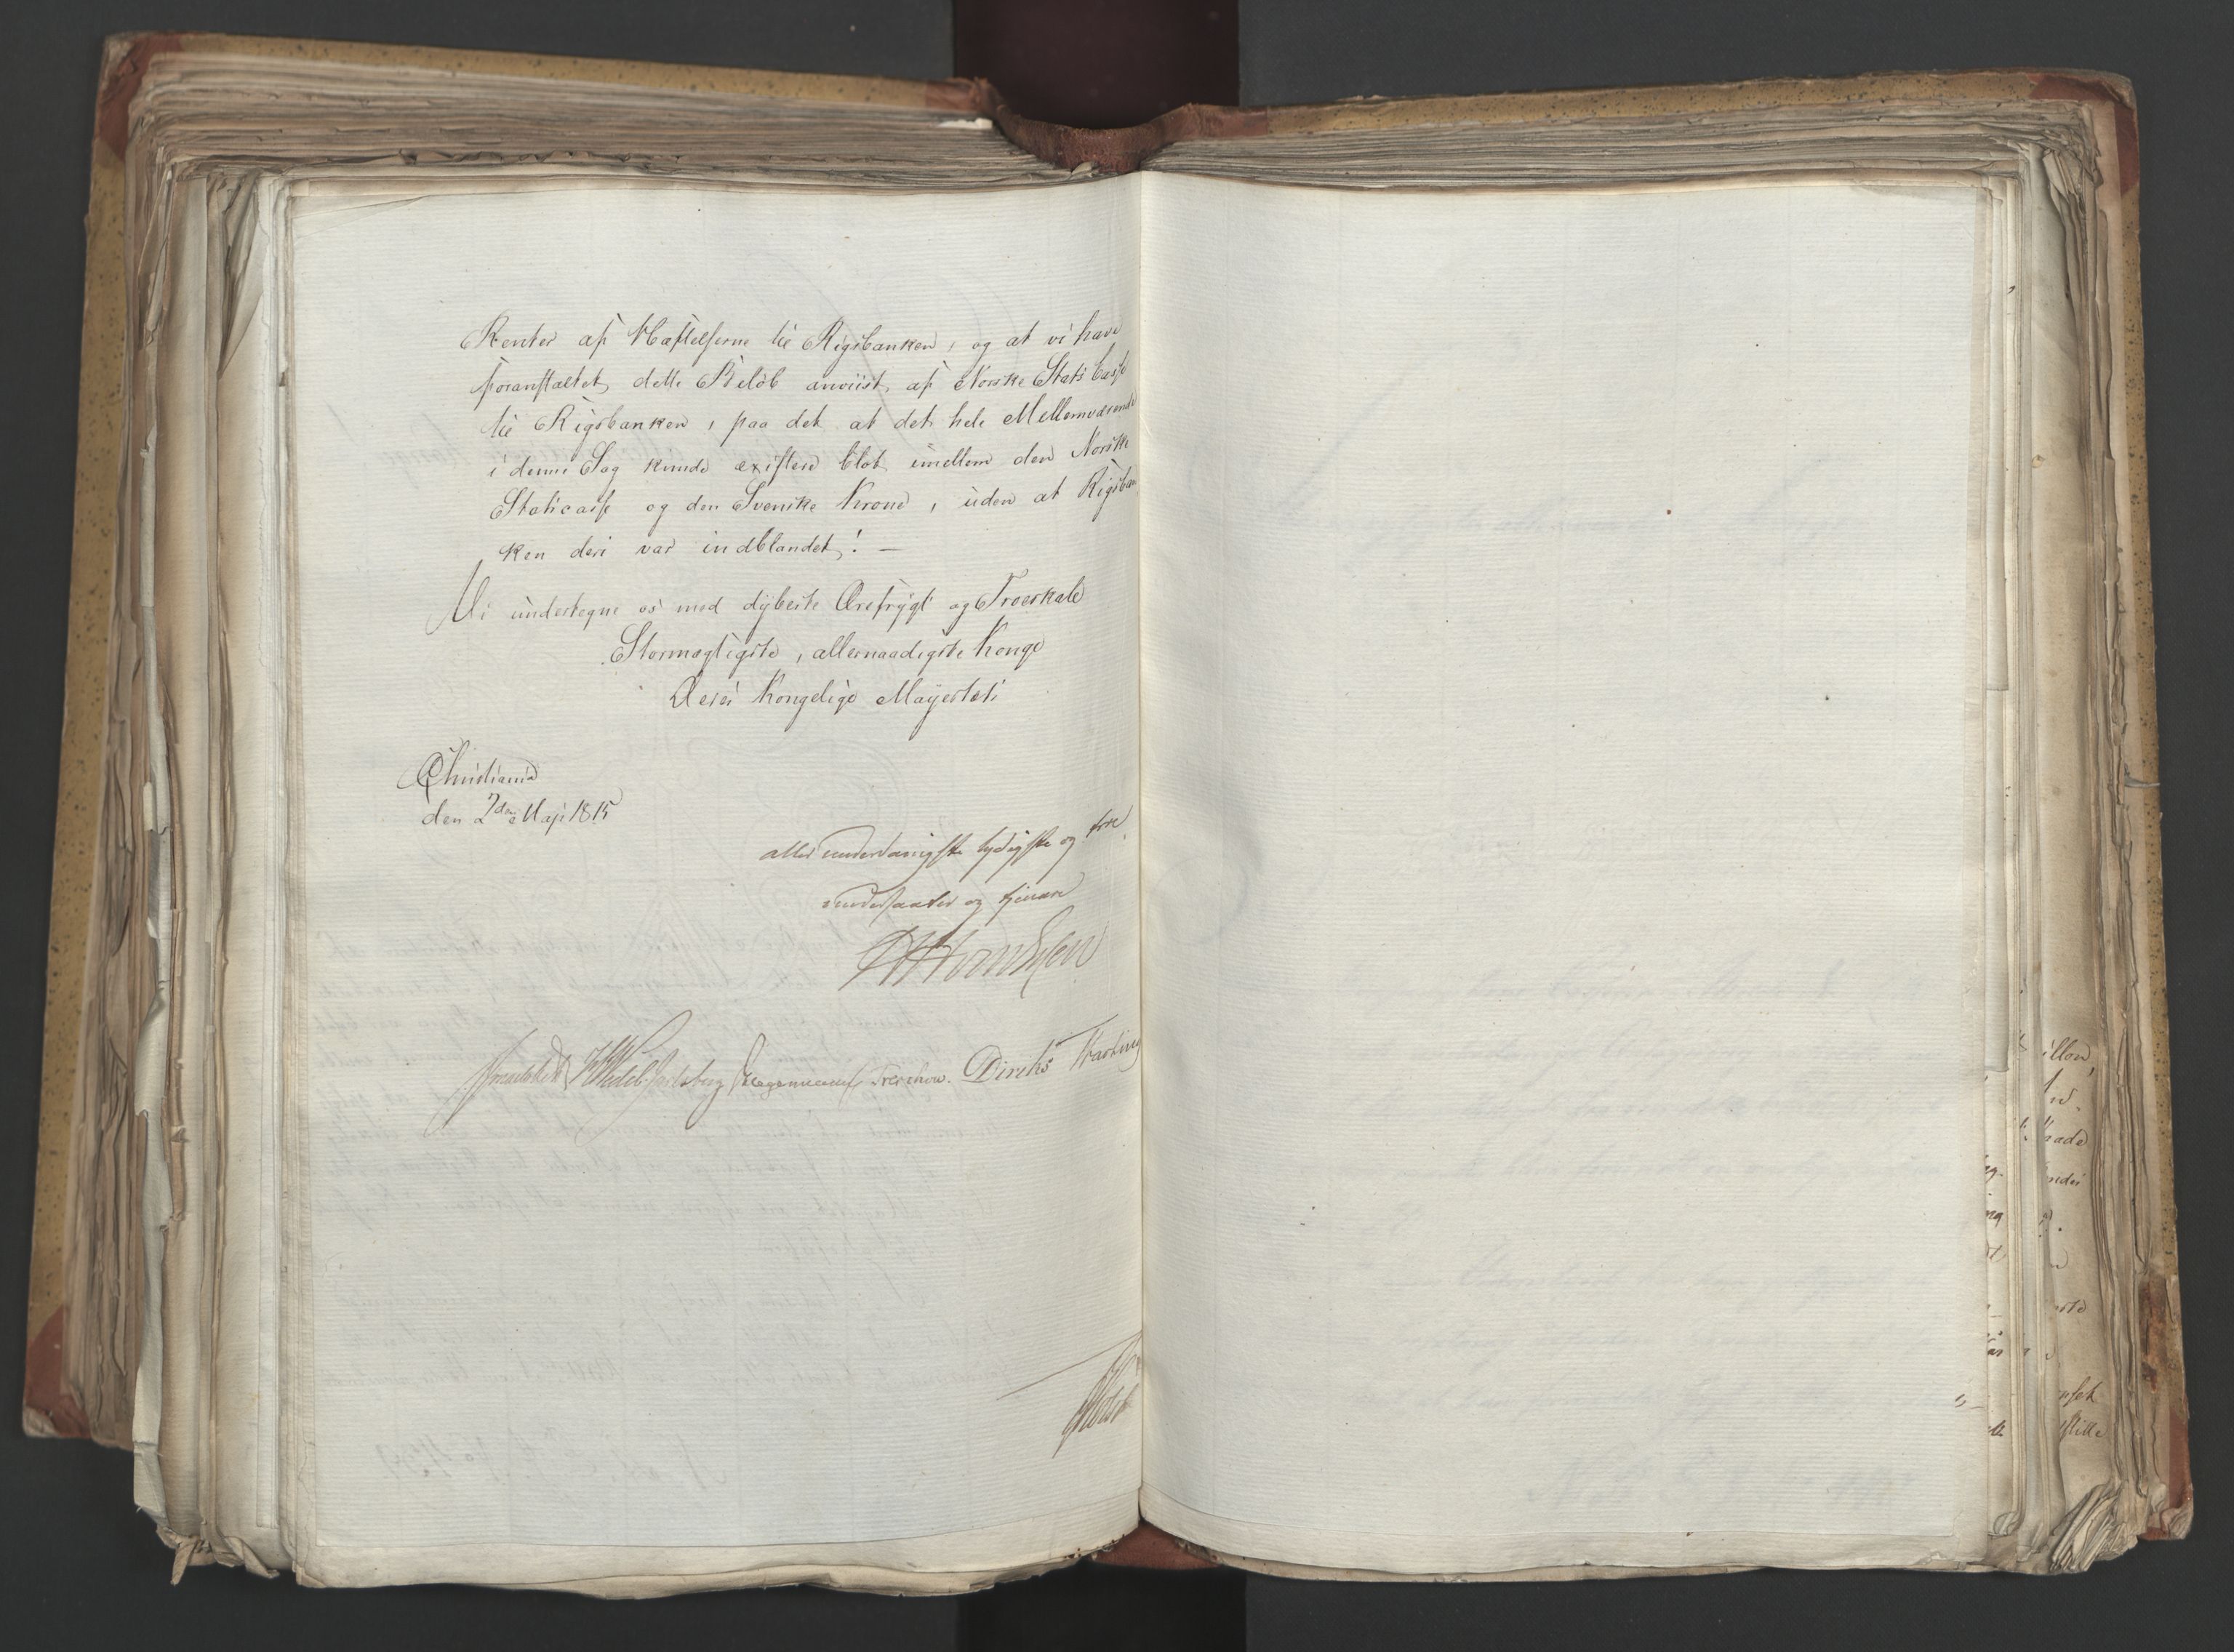 Renter af Hæftelserne til Rigsbanken, og at vi have
foranstaltet dette Beløb anviist af Norske Stats Casse
til Rigsbanken, paa det at det hele Mellemværende
i denne Sag kunde existere blot imellem den Norske
Statscasse og den Svenske Krone, uden at Rigsban
ken deri var indblandet! —
Vi undertegne os med dÿbeste Ærefrÿgt og Troeskab
Stormægtigste, allernaadigste Konge
Deres Kongelige Mayestæts
Christiania
den 2den Maji 1815
allerunderdanigste lydigste og troe
undersaatter og tienere
Wedel Jarlsberg Hagerup Treschow. Diriks
Holst